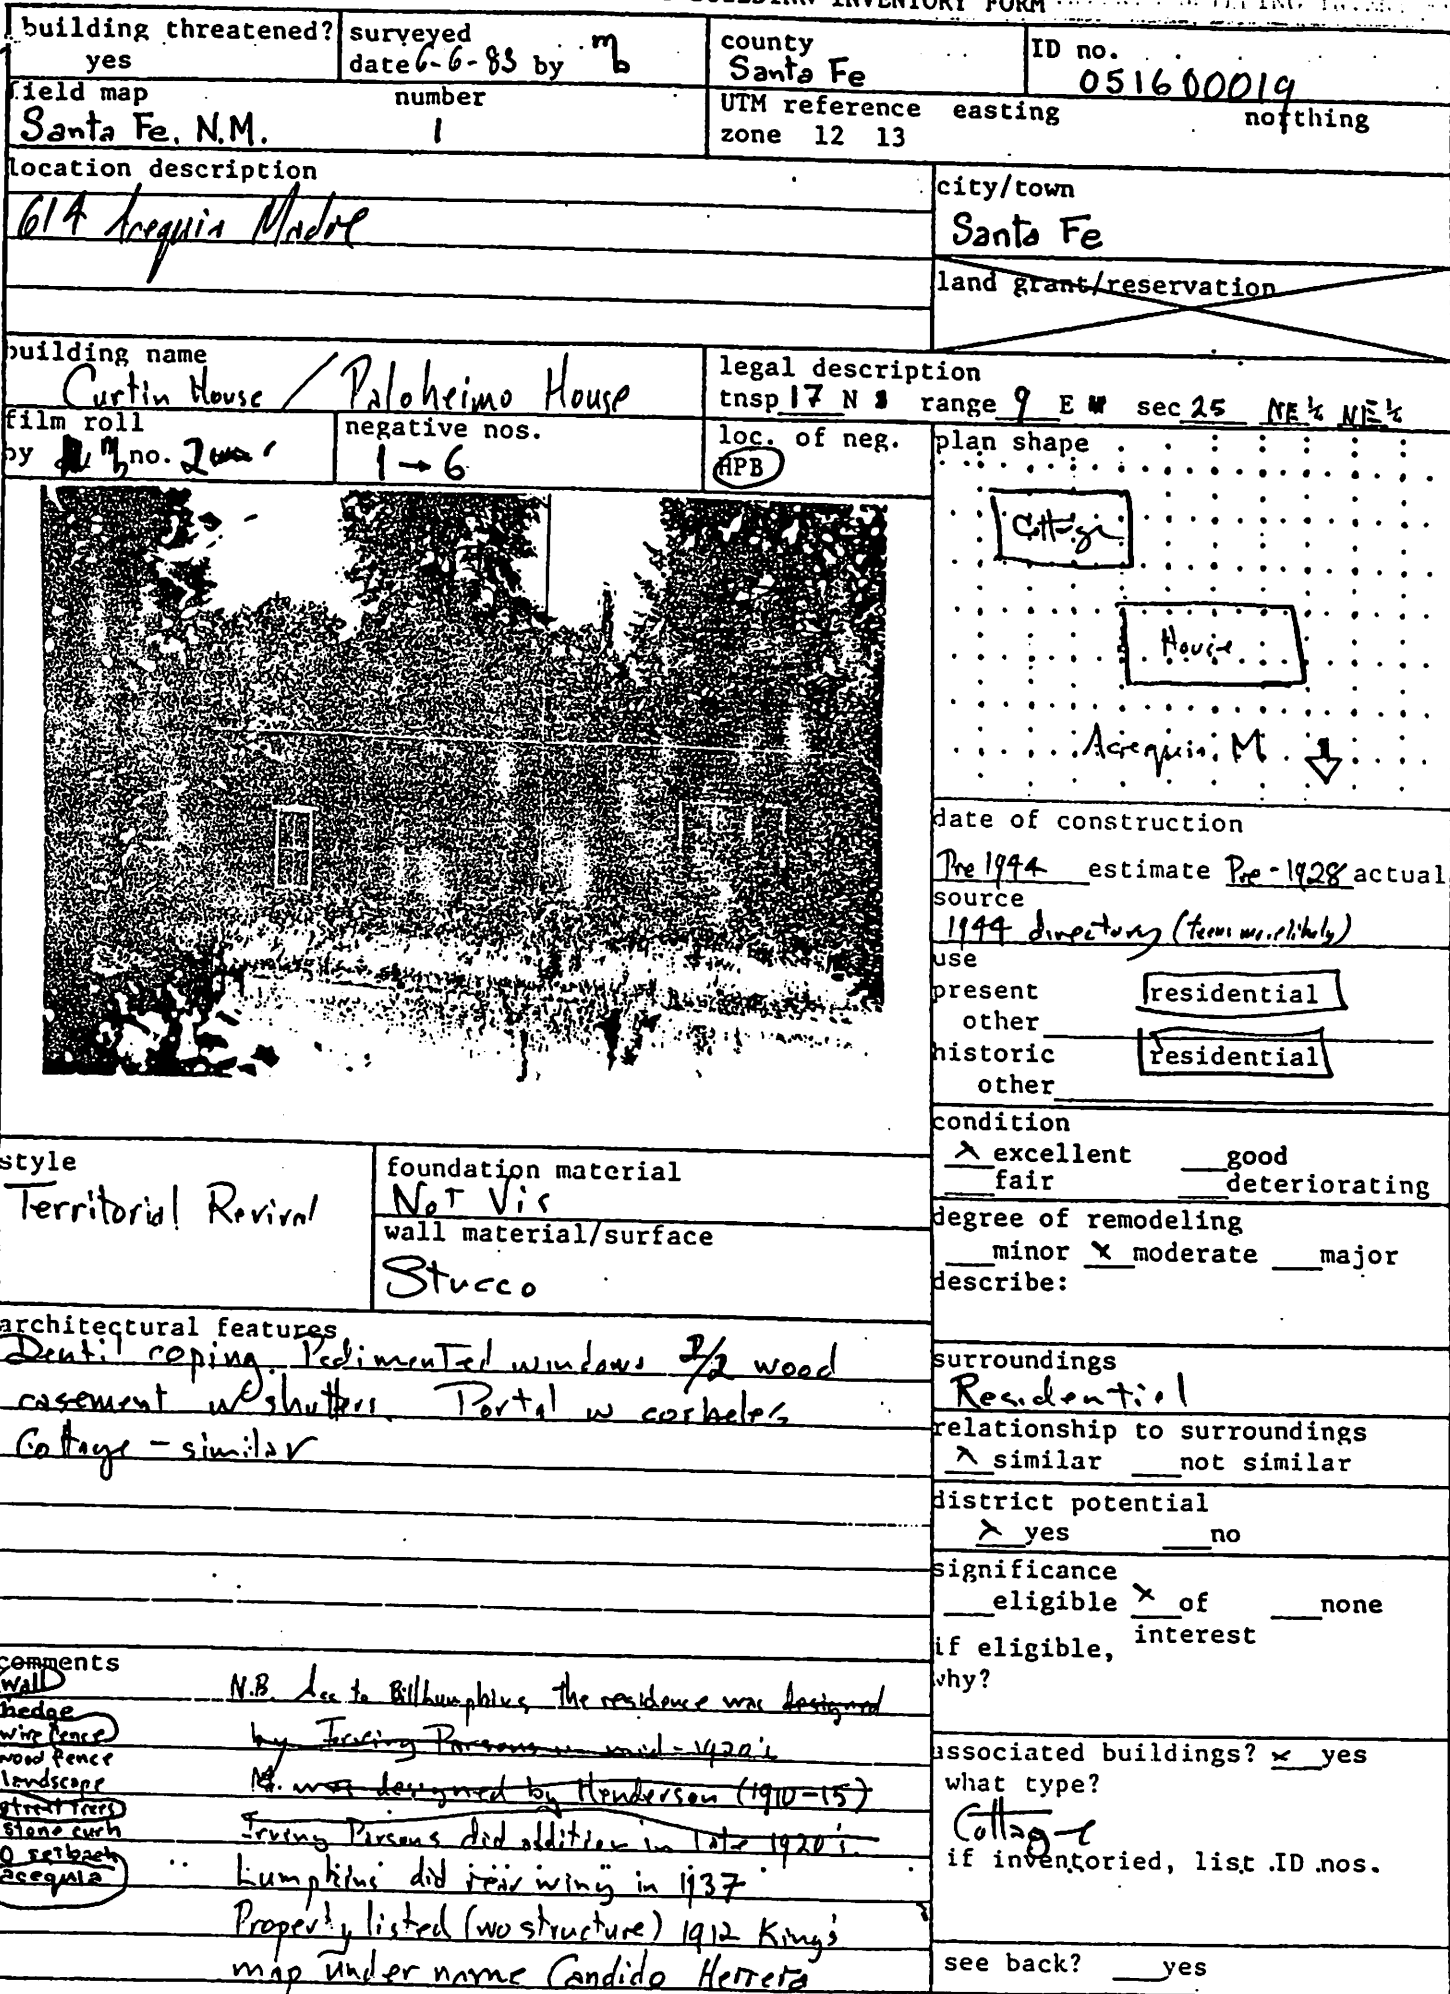 BUILDING INVENTORY FORM
building threatened?
yes
surveyed
date 6-6-83 by mb
county
Santa Fe
ID no.
051600019
field map number
Santa Fe, N.M. 1
UTM reference easting northing
zone 12 13
location description
614 Acequia Madre
city/town
Santa Fe
land grant/reservation
building name
Curtin House / Paloheimo House
legal description
tnsp 17 N S range 9 E W sec 25 NE ¼ NE ¼
film roll
by mb no. 2
negative nos.
1 → 6
loc. of neg.
HPB
plan shape
Cottage
House
Acequia M
date of construction
Pre 1944 estimate Pre-1928 actual
source
1944 directory (teens more likely)
use
present residential
other
historic residential
other
condition
x excellent good
fair deteriorating
degree of remodeling
minor x moderate major
describe:
style
Territorial Revival
foundation material
Not Vis
wall material/surface
Stucco
architectural features
Dentil coping. Pedimented windows 2/2 wood
casement w shutters. Portal w corbels
Cottage - similar
surroundings
Residential
relationship to surroundings
x similar not similar
district potential
x yes no
significance
eligible x of none
interest
if eligible,
why?
comments
wall
hedge
wire fence
wood fence
landscape
street trees
stone curb
0 setback
acequia
N.B. Acc to Bill Lumpkins, the residence was designed
by Irving Parsons in mid-1920's
was designed by Henderson (1910-15)
Irving Parsons did addition in late 1920's.
Lumpkins did rear wing in 1937
Property listed (wo structure) 1912 King's
map under name Candido Herrera
associated buildings? x yes
what type?
Cottage
if inventoried, list ID nos.
see back? yes